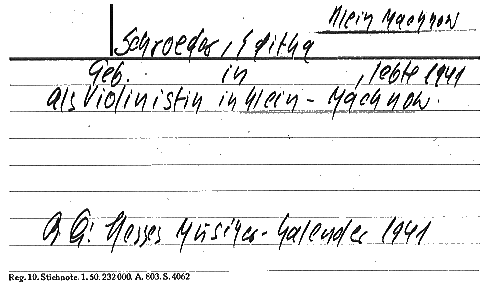 Klein Machnow
Schroeder, Editha
Geb. in , lebte 1941
als Violinistin in Klein-Machnow.
Q: Hesses Musiker-Kalender 1941
Reg. 10. Stichnote. 1. 50. 232000. A. 803. S. 4062